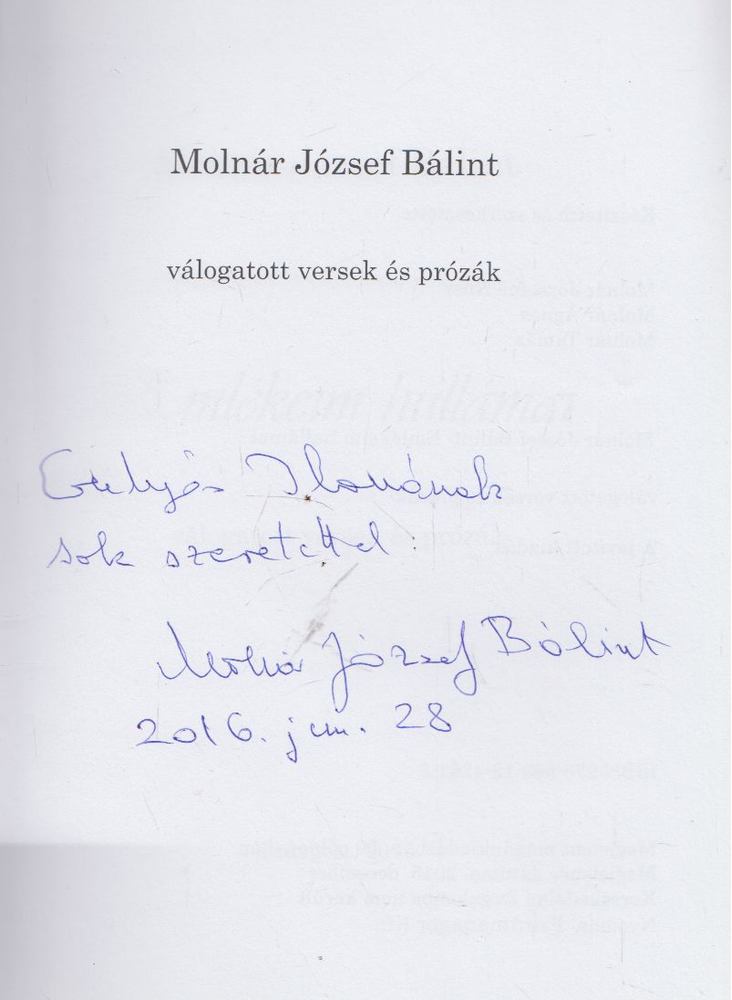 Molnár József Bálint
válogatott versek és prózák
Gulyás Ilonának
sok szeretettel:
Molnár József Bálint
2016. jun. 28